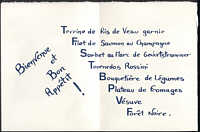 Bienvenue et
Bon
Appétit !
Terrine de Ris de Veau garnie
Filet de Saumon au Champagne
Sorbet au Marc de Gewurtztraminer
Tournedos Rossini
Bouquetière de Légumes
Plateau de Fromages
Vésuve
Forêt Noire.